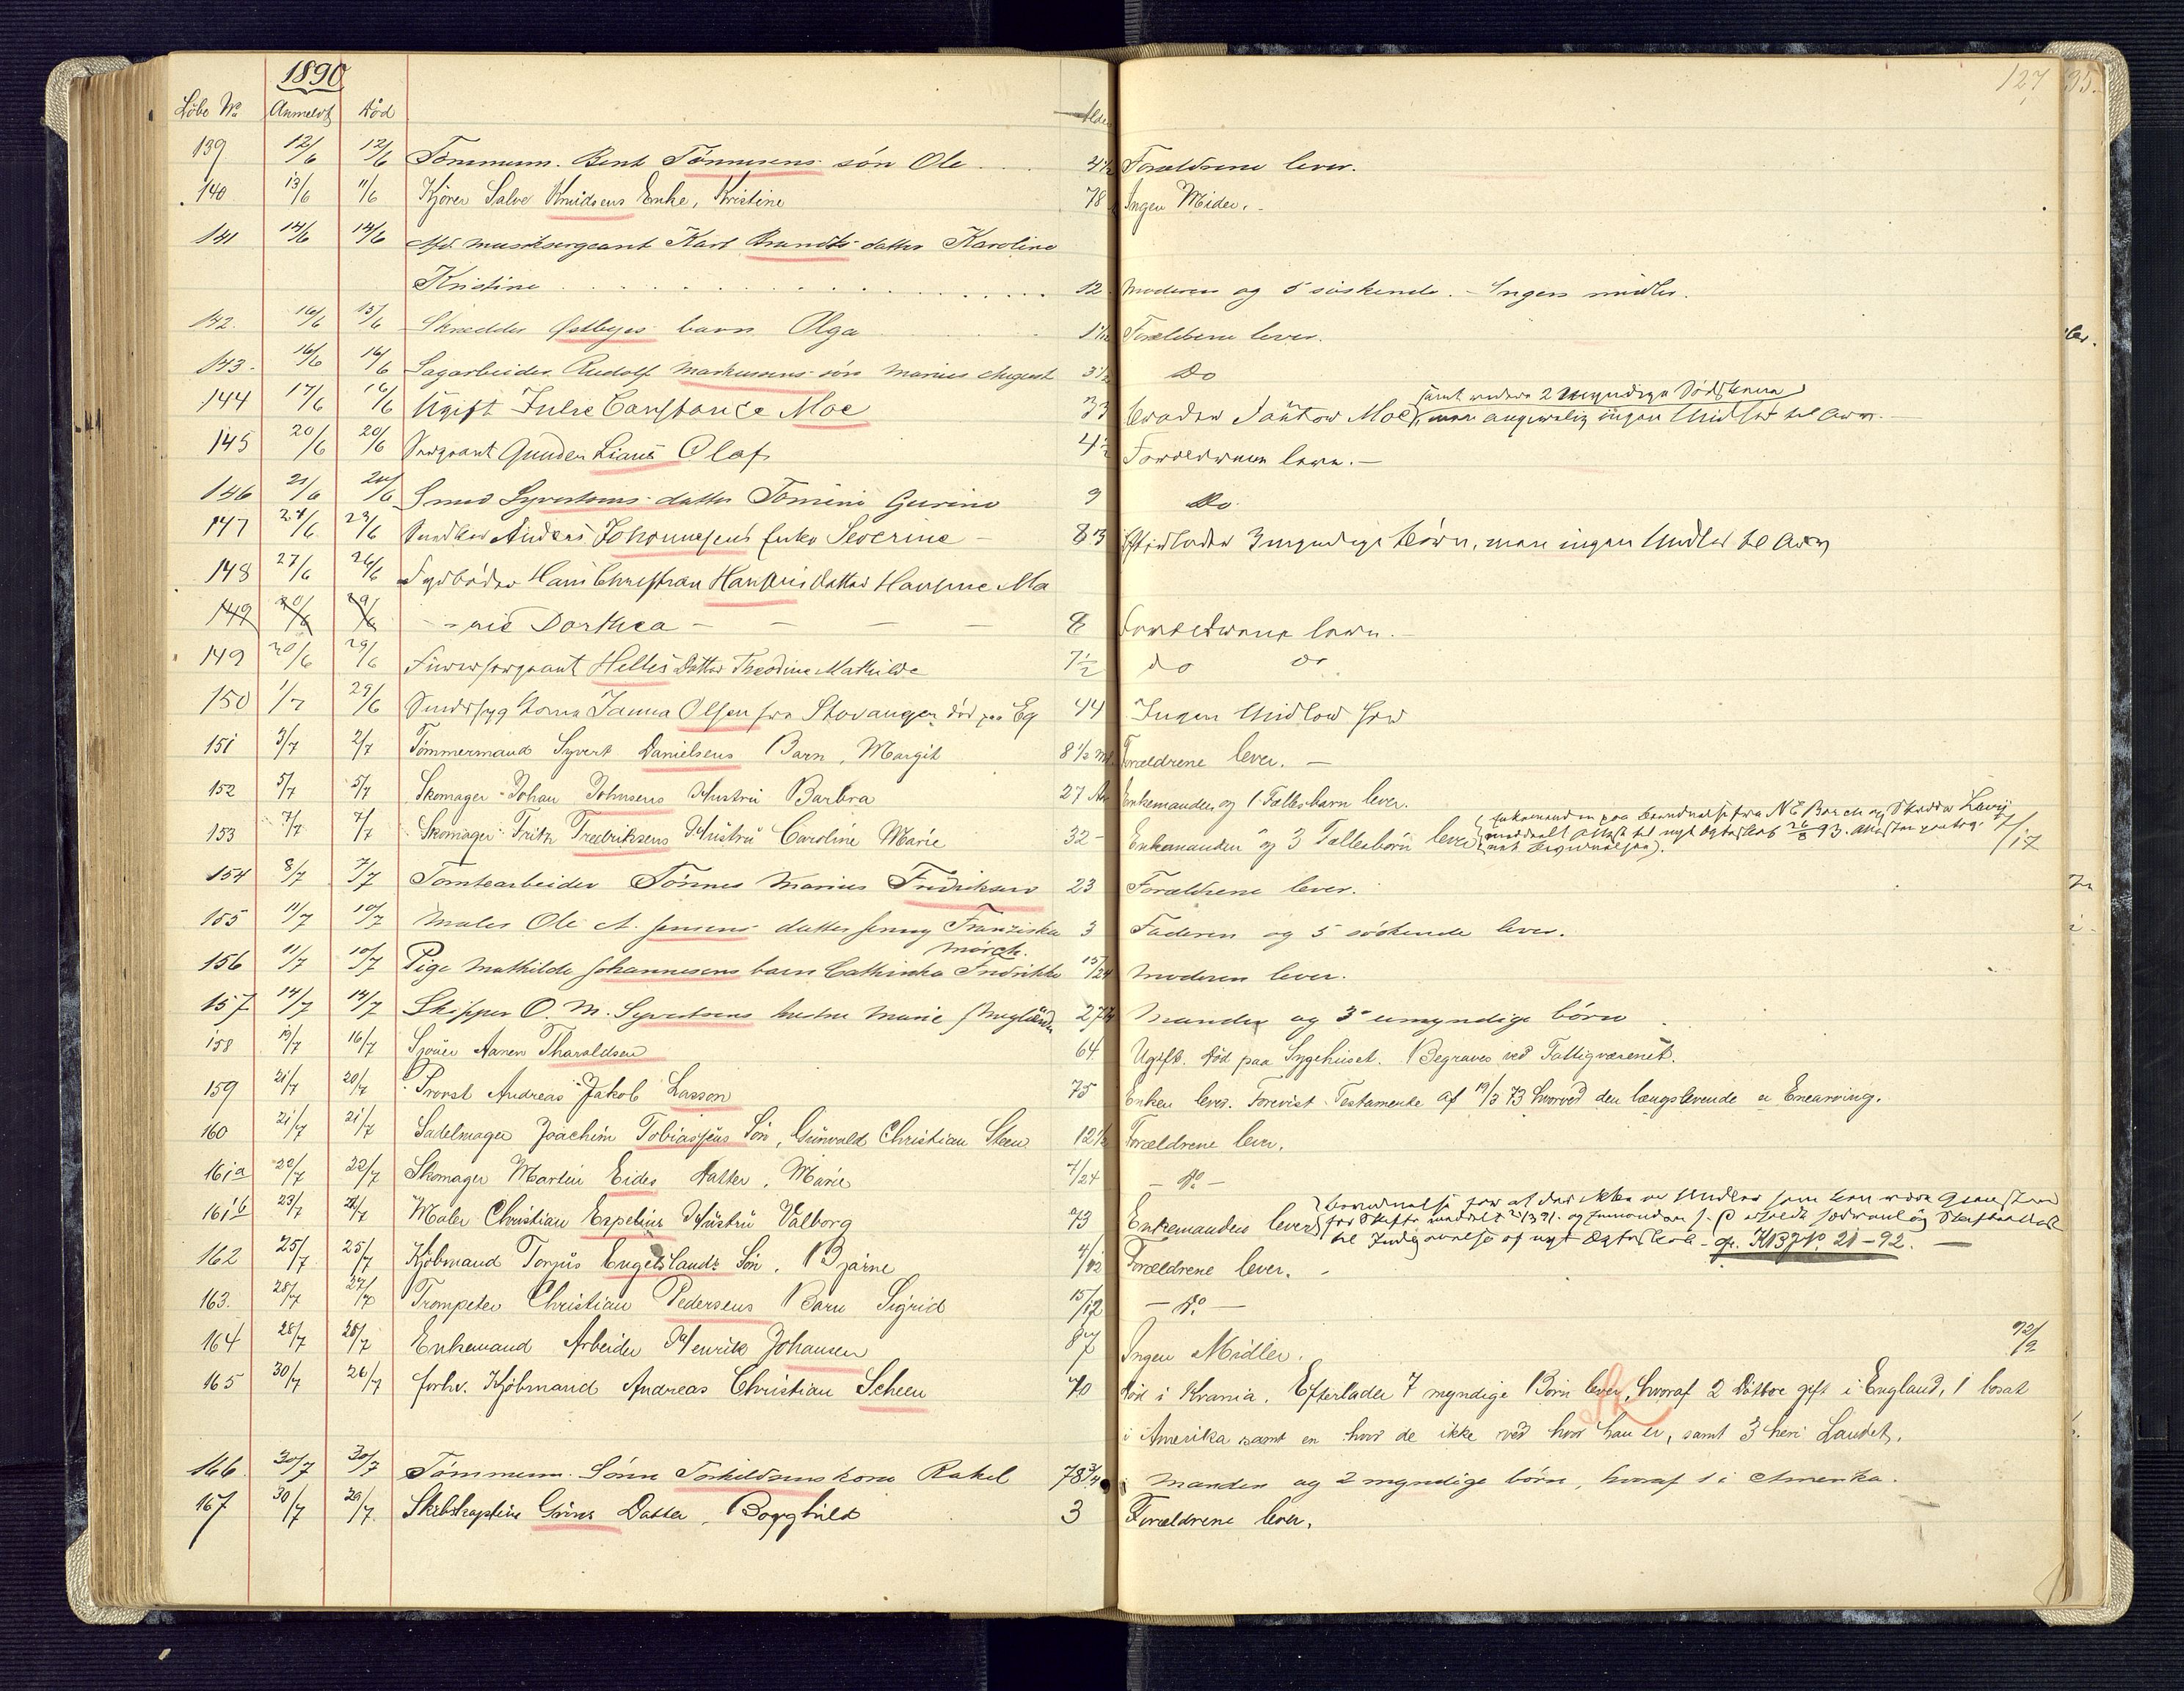 1890
127
Löbe No Anmeldt Död Alder
139 12/6 12/6 Tömmerm. Bent Tönnesens sön Ole 4 1/2 Forældrene lever.
140 13/6 11/6 Kjörer Salve Knudsens Enke, Kristine 78 Ingen Midler.
141 14/6 14/6 Afd. musiksergeant Karl Brandts datter Karoline
Kristine 12 Moderen og 5 söskende. - Ingen midler.
142. 16/6 15/6 Skrædder Østbyes barn Olga Forældrene lever.
143. 16/6 16/6 Sagarbeider Rudolf Markussens sön Marius August 3 1/2 Do
samt endvidere 2 umyndige Södskende
144 17/6 16/6 Ugift Julie Constance Moe 33 Broder Moe, men angivelig ingen Midler til Arv.
145 20/6 20/6 Sergeant Gunder Lians Olaf 4 1/2 Forældrene lever. -
146 21/6 20/6 Smed Syvertsens datter Tomine Gurine 9 Do.
147 24/6 23/6 Anders Johannesens Enke Severine - 83 Efterlader 3 myndige Börn, men ingen Midler til Arv
148 27/6 26/6 Hans Christian Hansens Datter Hansine Ma
149 30/6 29/6 - rie Dorthea - - - - 8 Forældrene lever. -
149 30/6 29/6 Furersergeant Helles Datter Theodine Mathilde 7 1/2 do do
150 1/7 29/6 Sindssyg Kone Janna Olsen fra Stavanger död paa Eg 44 Ingen Midler
151 3/7 2/7 Tömmermand Syvert Danielsens Barn, Margit 8 1/2 Forældrene lever. -
152 5/7 5/7 Skomager Johan Johnsens Hustru Barbra 27 Aar Enkemanden og 1 Fællesbarn lever.
153 7/7 7/7 Skomager Fritz Fredriksens Hustru Caroline Marie 32 - Enkemanden og 3 Fællesbörn lever
154 8/7 7/7 Tomtearbeider Tönnes Marius Fredriksen 23 Forældrene lever.
155 11/7 10/7 Maler Ole A. Jensens datter Jenny Franziska 3 Faderen og 5 söskende lever.
Mörch.
156 11/7 10/7 Pige Mathilde Johannesens barn Cathinka Fredrikke 15/24 Moderen lever.
157 14/7 14/7 Skipper O. M. Syvertsens hustru Marie 27 Manden og 3 umyndige börn
158 19/7 16/7 Sjöuer Aanen Tharaldsen 64 Ugift. Död paa Sygehuset. Begraves ved Fattigvæsenet.
159 21/7 20/7 Provst Andreas Jakob Lasson 75 Enken lever. Forevist Testamente af 19/3 73 hvorved den længstlevende er Enearving.
160 21/7 21/7 Sadelmager Joachim Tobiassens Sön, Grünvald Christian Steen 12 1/2 Forældrene lever.
161a 22/7 22/7 Skomager Martin Eides Datter, Marie 7/24 - Do -
161b 23/7 Maler Christian Espelins Hustru Valborg 73 Enkemanden lever
til Indgaaelse af nyt Ægteskab - 21-92. -
162 25/7 25/7 Kjöbmand Torjus Engelslands Sön, Bjarne 4/12 Forældrene lever. -
163. 28/7 27/7 Trompeter Christian Pedersens Barn Sigrid 15/12 - Do -
164 28/7 28/7 Enkemand Arbeider Henrik Johansen 87 Ingen Midler. 92/2
165 30/7 26/7 forhv. Kjöbmand Andreas Christian Scheen 70 Död i Krania. Efterlader 7 myndige Börn lever, hvoraf 2 Döttre gift i England, 1 bosat
i Amerika samt en hvor de ikke ved hvor han er, samt 3 her i Landet.
166 30/7 30/7 Tömmerm. Sörren Torkildsens kone Rakel 78 3/4 Manden og 2 myndige börn, hvoraf 1 i Amerika.
167 30/7 29/7 Skibskaptein Gröns Datter, Borghild 3 Forældrene lever.